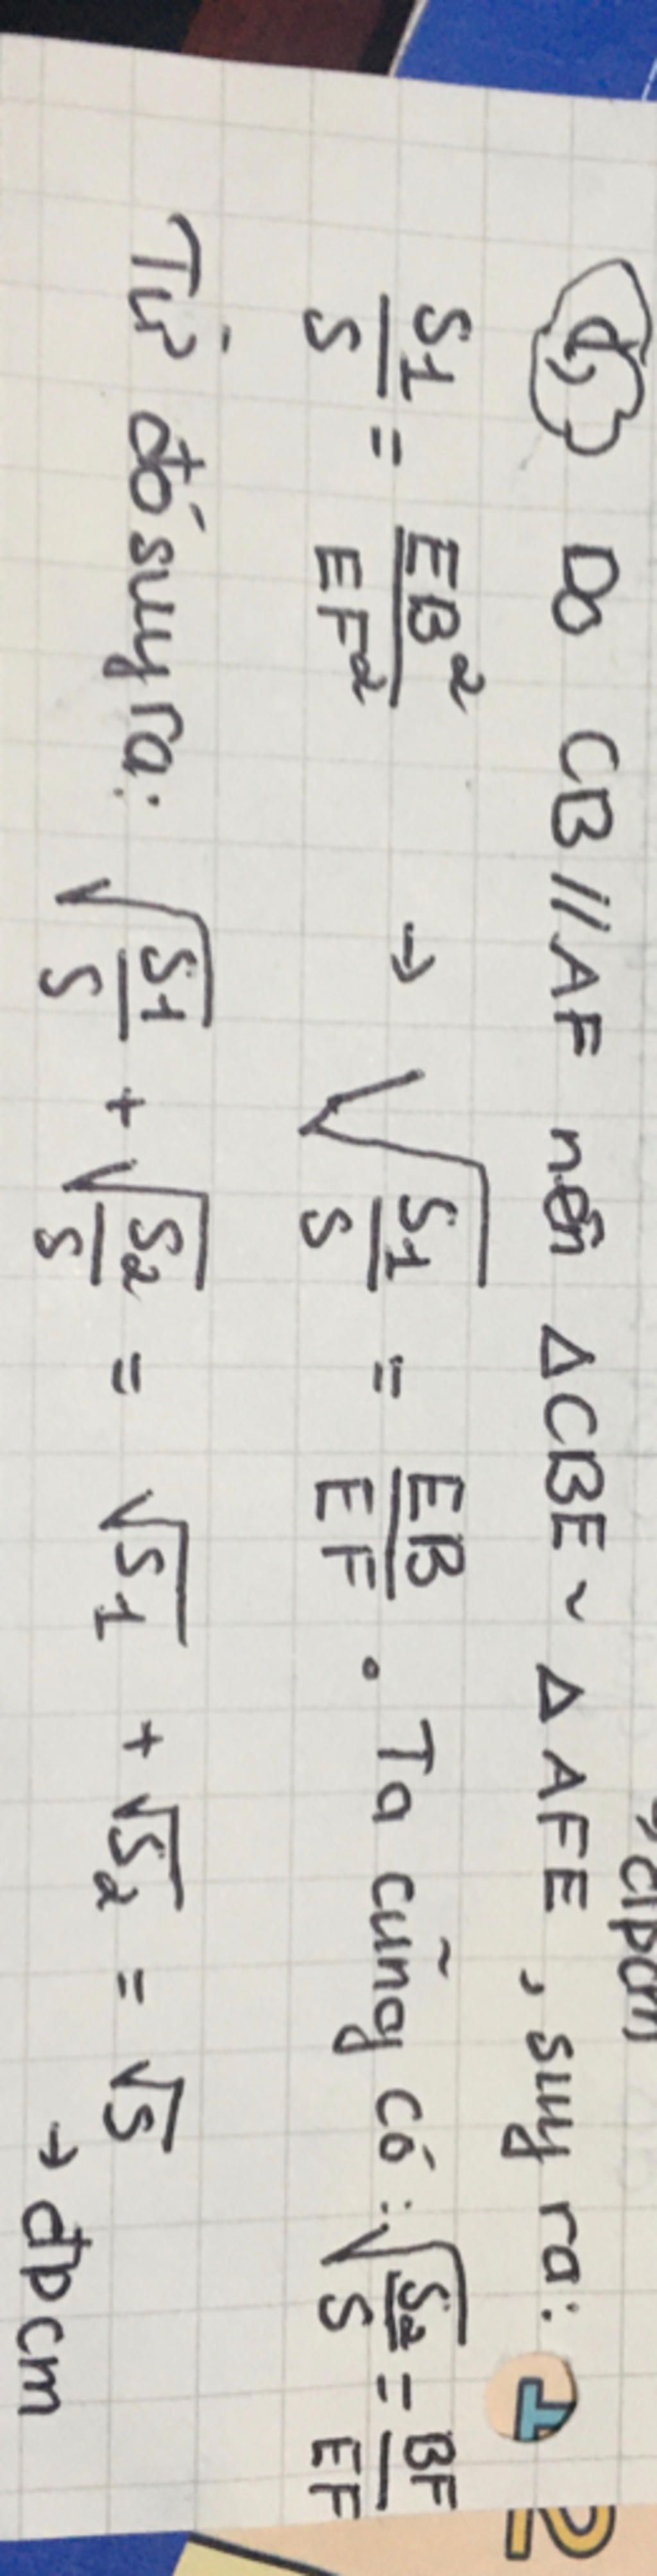 → đpcm
d, Do CB // AF nên ΔCBE ~ ΔAFE, suy ra:
S1/S = EB²/EF² → √(S1/S) = EB/EF. Ta cũng có: √(S2/S) = BF/EF
Từ đó suy ra: √(S1/S) + √(S2/S) = √S1 + √S2 = √S
→ đpcm
1
2